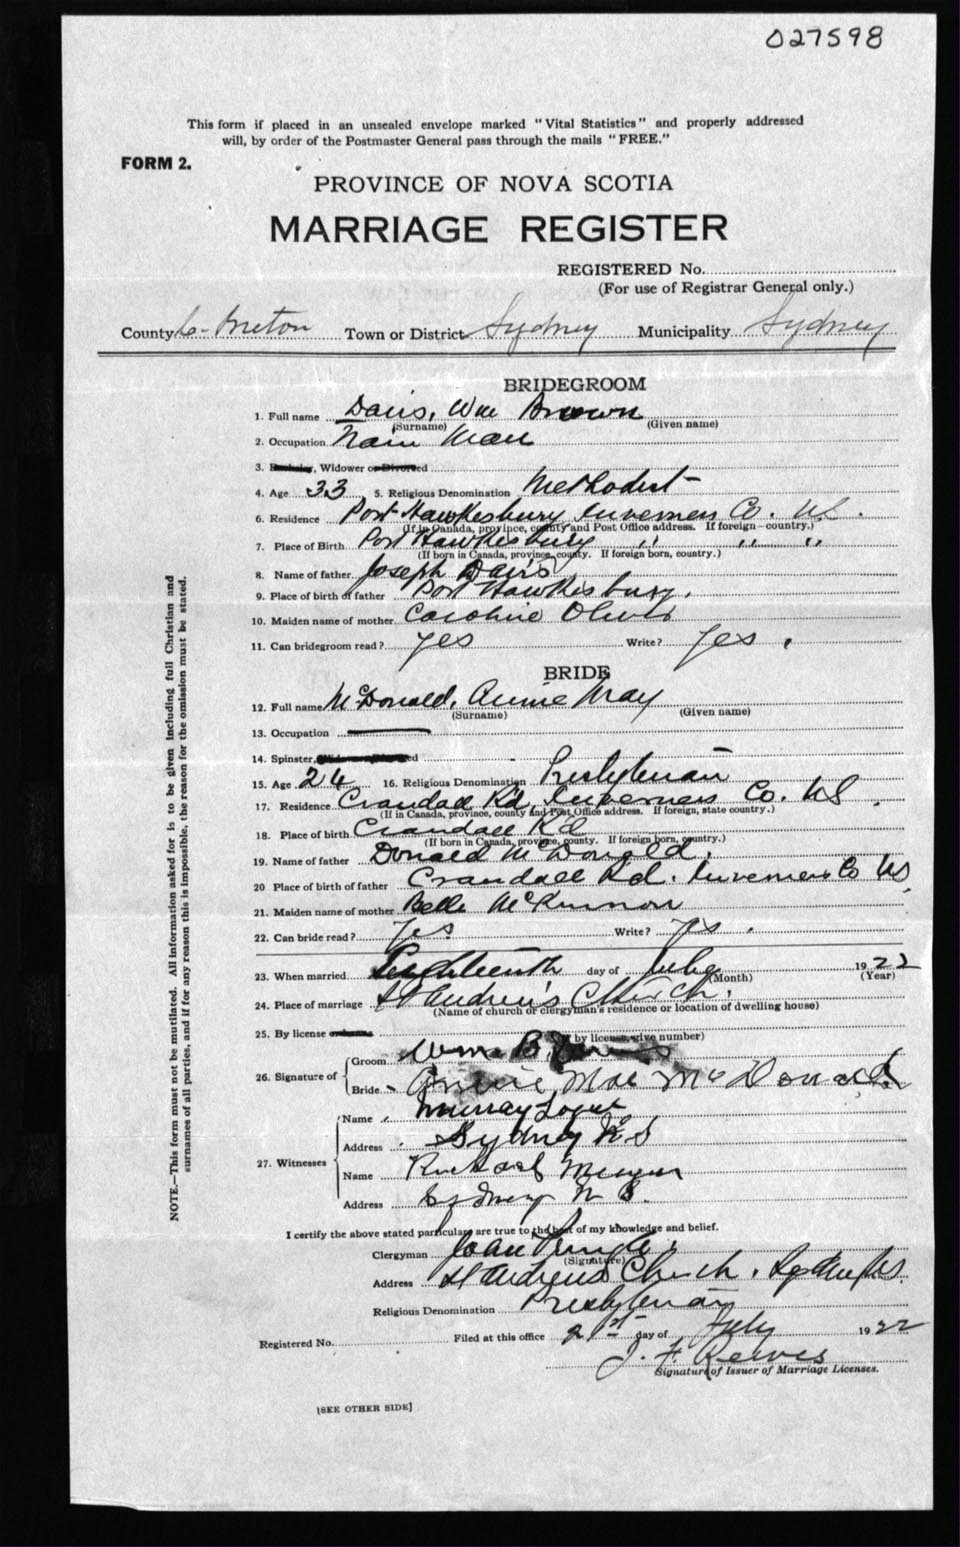 027598
This form if placed in an unsealed envelope marked "Vital Statistics" and properly addressed
will, by order of the Postmaster General pass through the mails "FREE."
FORM 2.
PROVINCE OF NOVA SCOTIA
MARRIAGE REGISTER
REGISTERED No.
(For use of Registrar General only.)
County C-Breton Town or District Sydney Municipality Sydney
BRIDEGROOM
1. Full name Davis, Wm Brown
(Surname) (Given name)
2. Occupation Train Man
3. , Widower or Divorced
4. Age 33 5. Religious Denomination Methodist
6. Residence Port Hawkesbury Inverness Co. NS.
(If in Canada, province, county and Post Office address. If foreign—country.)
7. Place of Birth Port Hawkesbury " " "
(If born in Canada, province, county. If foreign born, country.)
8. Name of father Joseph Davis
9. Place of birth of father Port Hawkesbury.
10. Maiden name of mother Caroline Oliver
11. Can bridegroom read? yes Write? Yes.
BRIDE
12. Full name McDonald, Annie May
(Surname) (Given name)
13. Occupation
14. Spinster,
15. Age 24 16. Religious Denomination Presbyterian
17. Residence Crandall Rd, Inverness Co. NS.
(If in Canada, province, county and Post Office address. If foreign, state country.)
18. Place of birth Crandall Rd
(If born in Canada, province, county. If foreign born, country.)
19. Name of father Donald McDonald.
20 Place of birth of father Crandall Rd. Inverness Co NS
21. Maiden name of mother Belle McKinnon
22. Can bride read? Yes. Write? Yes.
23. When married Eighteenth day of July 1922
(Month) (Year)
24. Place of marriage St Andrew's Church.
(Name of church or clergyman's residence or location of dwelling house)
25. By license
(If by license, give number)
26. Signature of Groom Wm. B. Davis
Bride Annie Mae McDonald
27. Witnesses Name Murray
Address Sydney NS
Name
Address Sydney N S.
I certify the above stated particulars are true to the best of my knowledge and belief.
Clergyman Pringle.
(Signature)
Address St Andrews Church, Sydney NS.
Religious Denomination Presbyterian
Registered No. Filed at this office 21st day of July 1922
J. F. Reeves
Signature of Issuer of Marriage Licenses.
[SEE OTHER SIDE]
NOTE.—This form must not be mutilated. All information asked for is to be given including full Christian and
surnames of all parties, and if for any reason this is impossible, the reason for the omission must be stated.